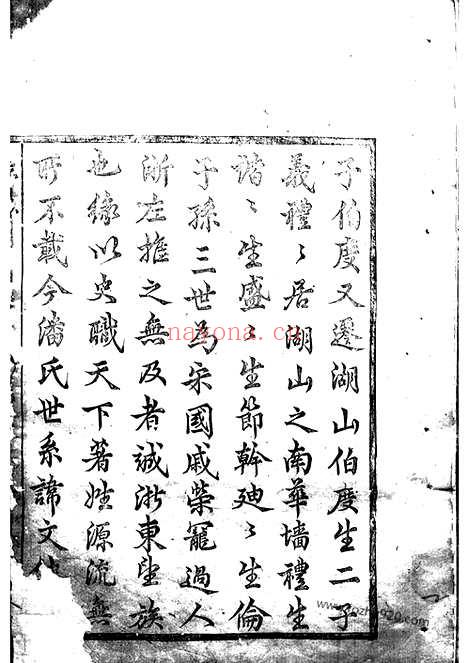 子伯度又遷湖山伯度生二子
義禮〻居湖山之南華墻禮生
諧〻生盛〻生節幹廸〻生倫
子孫三世為宋國戚榮寵過人
浙左推之無及者誠浙東望族
也緣以史職天下著姓源流無
所不載今潘氏世系諱文
nayona.cn